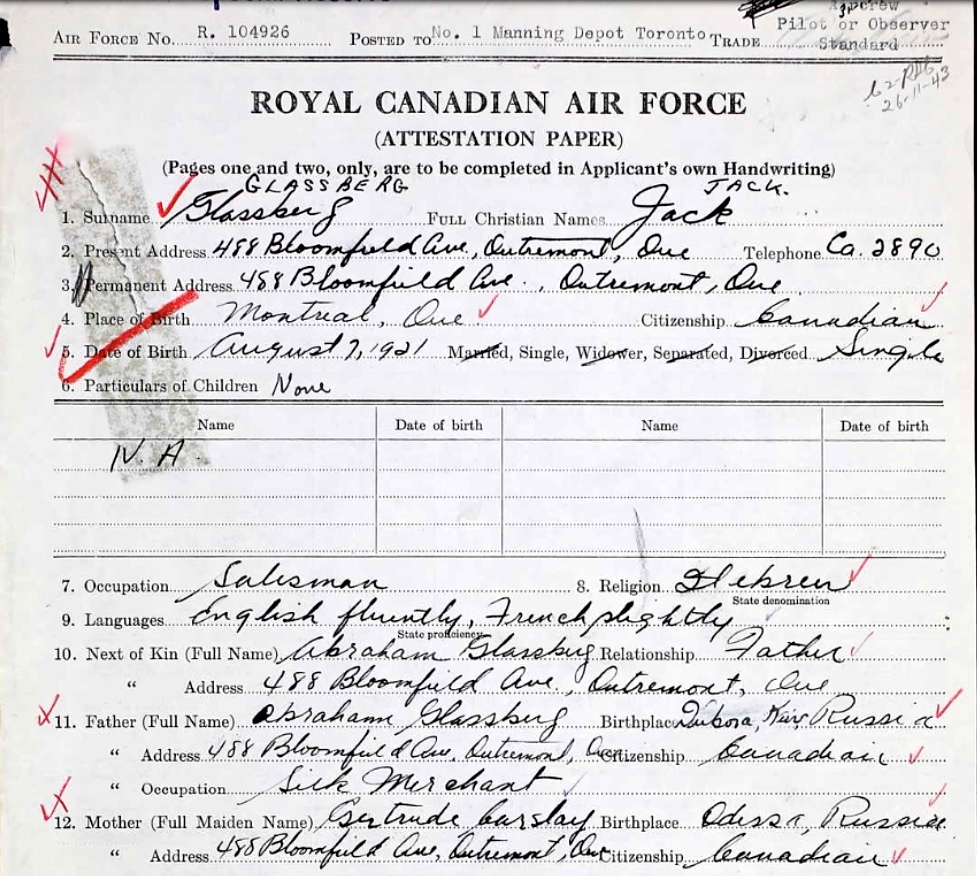 Aircrew
Pilot or Observer
AIR FORCE No. R. 104926 POSTED TO No. 1 Manning Depot Toronto TRADE Standard
26-11-43
ROYAL CANADIAN AIR FORCE
(ATTESTATION PAPER)
(Pages one and two, only, are to be completed in Applicant's own Handwriting)
GLASSBERG JACK.
1. Surname Glassberg FULL Christian Names Jack
2. Present Address 488 Bloomfield Ave, Outremont, Que Telephone Ca. 2890
3. Permanent Address 488 Bloomfield Ave., Outremont, Que
4. Place of Birth Montreal, Que Citizenship Canadian
5. Date of Birth August 7, 1921 Married, Single, Widower, Separated, Divorced Single
6. Particulars of Children None
Name Date of birth Name Date of birth
N. A.
7. Occupation Salesman 8. Religion Hebrew
State denomination
9. Languages English fluently, French slightly
State proficiency
10. Next of Kin (Full Name) Abraham Glassberg Relationship Father
" Address 488 Bloomfield Ave., Outremont, Que
11. Father (Full Name) Abraham Glassberg Birthplace Russia
" Address 488 Bloomfield Ave, Outremont, Que Citizenship Canadian
" Occupation Silk Merchant
12. Mother (Full Maiden Name) Gertrude Birthplace Odessa, Russia
" Address 488 Bloomfield Ave, Outremont, Que Citizenship Canadian